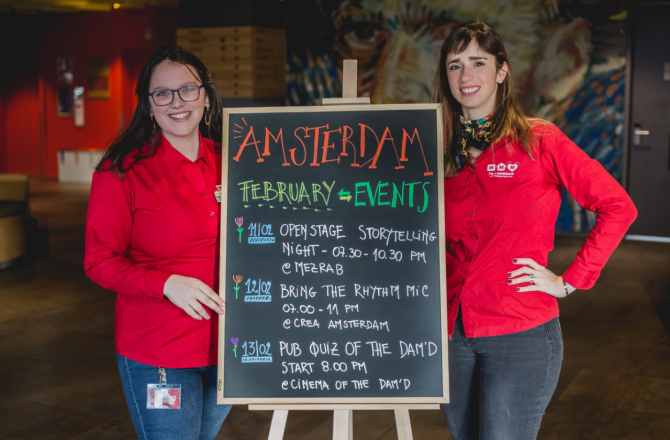 AMSTERDAM
FEBRUARY EVENTS
11/02 OPEN STAGE STORYTELLING
NIGHT - 07.30 - 10.30 PM
@ MEZRAB
12/02 BRING THE RHYTHM MIC
07.00 - 11 PM
@ CREA AMSTERDAM
13/02 PUB QUIZ OF THE DAM'D
START 8.00 PM
@ CINEMA OF THE DAM'D